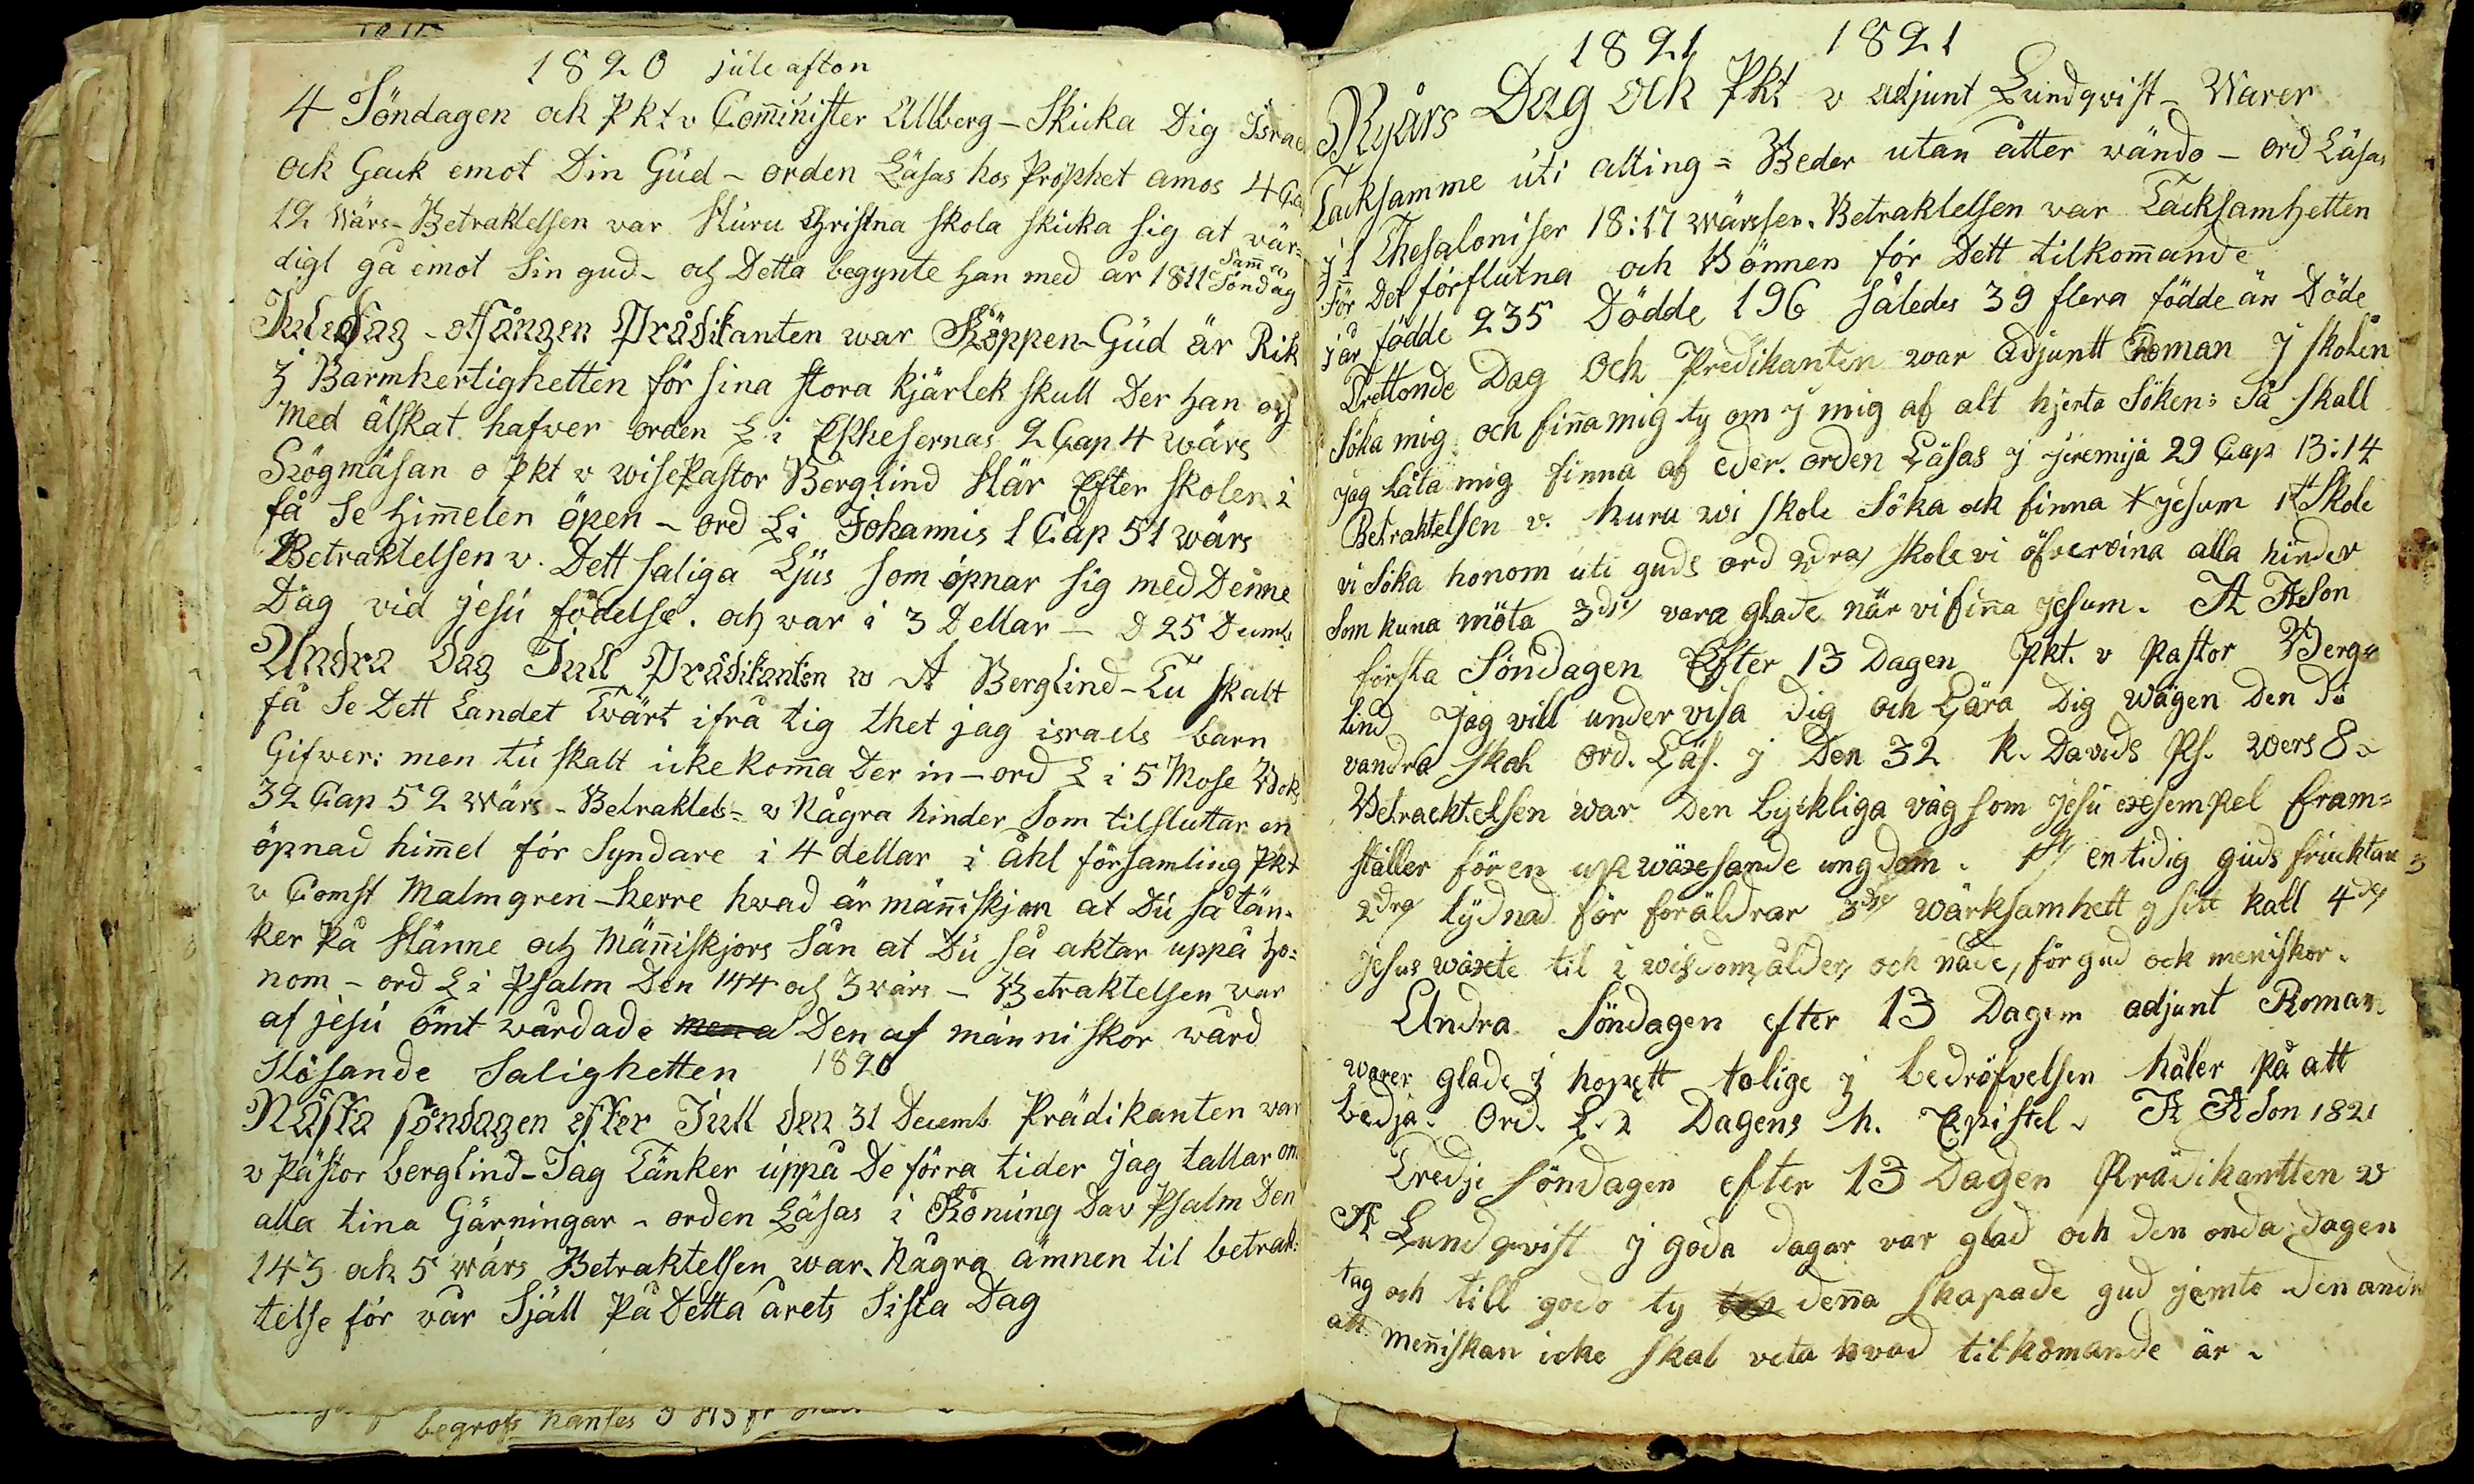 1820 jule afton
4 Söndagen och Pkt v Com̄inister Allberg – Skicka Dig Israe
ock Gack emot Din Gud – orden Läsas hos Prophet amos 4 Ca
12 wärs – Betraktelsen var Huru Christna skola skicka sig at vär-
digt gå emot Sin gud – och Detta begynte han med år 1811 Sam̄a Söndag
Juledag – otsången Prädikanten war Köppen – Gud är Rik
j Barmhertighetten för sina stora kjärlek skull Der han oss
Med älskat hafver orden L i Ephesernas 2 Cap 4 wärs
Högmäsan o Pkt v wisePastor Berglind Här Efter skolen i
få Se Him̄elen öpen – ord L i Johannis 1 Cap 51 wärs
Betraktelsen v. Dett saliga Ljus som öpnar sig med Denne
Dag vid jesu födelse. och war i 3 Dellar – D 25 Decemb
Andra Dag Jull Prädikanten w A Berglind – Tu skalt
få Se Dett Landet Twärt ifrå tig thet jag israels barn
Gifver: men tu skalt icke kom̄a Der in – ord L i 5 Mose Bok
32 Cap 52 wärs – Betraktels= v Några hinder Som tilsluttar en
öpnad him̄el för Syndare i 4 dellar i åhl församling Pkt
v Comst Malmgren – herre hwad är män̄iskjan at Du så tän-
ker På Hänne och Män̄iskjors Sån at Du så aktar uppå ho=
nom – ord L i Psalm Den 144 och 3 wärs – Betraktelsen war
af jesu ömt wårdade men a Den af människor wård
slösande Salighetten 1820
Nästa söndagen efter Jull den 31 Decemb. Prädikanten war
v Pästor berglind – Jag Tänker uppå De förra tider jag tallar om
alla tina Gärningar – orden Läsas i Konung Dav Psalm Den
143 och 5 wärs Betraktelsen war. Några ämnen til betrak:
telse för vår Själl På Detta årets Sista Dag
begrofs hanses
1821 1821
Nyårs Dag ock Pkt v adjunt Lundqvist – Warer
Tacksamme uti alting = Beder utan åtter wändo – ord Läsas
j 1 Thesaloniser 18:17 wärsser. Betraktelsen war Tacksamhetten
För Det förflutna och Bönnen för Dett tilkom̄ande
j år födde 235 Dödde 196 således 39 flera födde än Döde
Trettonde Dag Och Predikanten war Adjuntt Roman J skolen
Söka mig och fin̄a mig ty om j mig af alt hjerta Söken: Så skall
jag låta mig finna af eder. orden Läsas j jeremija 29 Cap 13:14
Betraktelsen v. huru wi skole Söka ock finna jesum 1st Skole
vi Söka honom uti guds ord 2dra skole vi öfvervina alla hinder
Som kuna möta 3die vara glade när vi fin̄a jesum. A ASon
första Söndagen Efter 13 Dagen Pkt. v Pastor Berg=
lind Jag vill under visa Dig och Lära Dig wägen Den Du
vandra skal ord. Läs. j Den 32 k. Davids Ps. wers 8.
Betracktelsen war Den Lyckliga väg som jesu exsempel fram=
ställer för en upwäxesande ungdom. 1st en tidig guds fruktan
2dra Lydnad för föräldrar 3die wärksamhett j sitt kall 4de
jesus wäxte til i wisdom, ålder, och nåde, för gud ock meniskor.
Andra Söndagen efter 13 Dagen adjunt Roman
warer glade j hopett tolige j bedröfvelsen håler På att
bedja. Ord. L. i Dagens h. Epistel. A ASon 1821
Tredje Söndagen efter 13 Dagen Prädikantten w
A Lundqwist j goda dagar var glad och den onda dagen
tag och till godo ty den̄a skapade gud jemte den andra
att men̄iskan icke skal veta hvad tilkomande är.